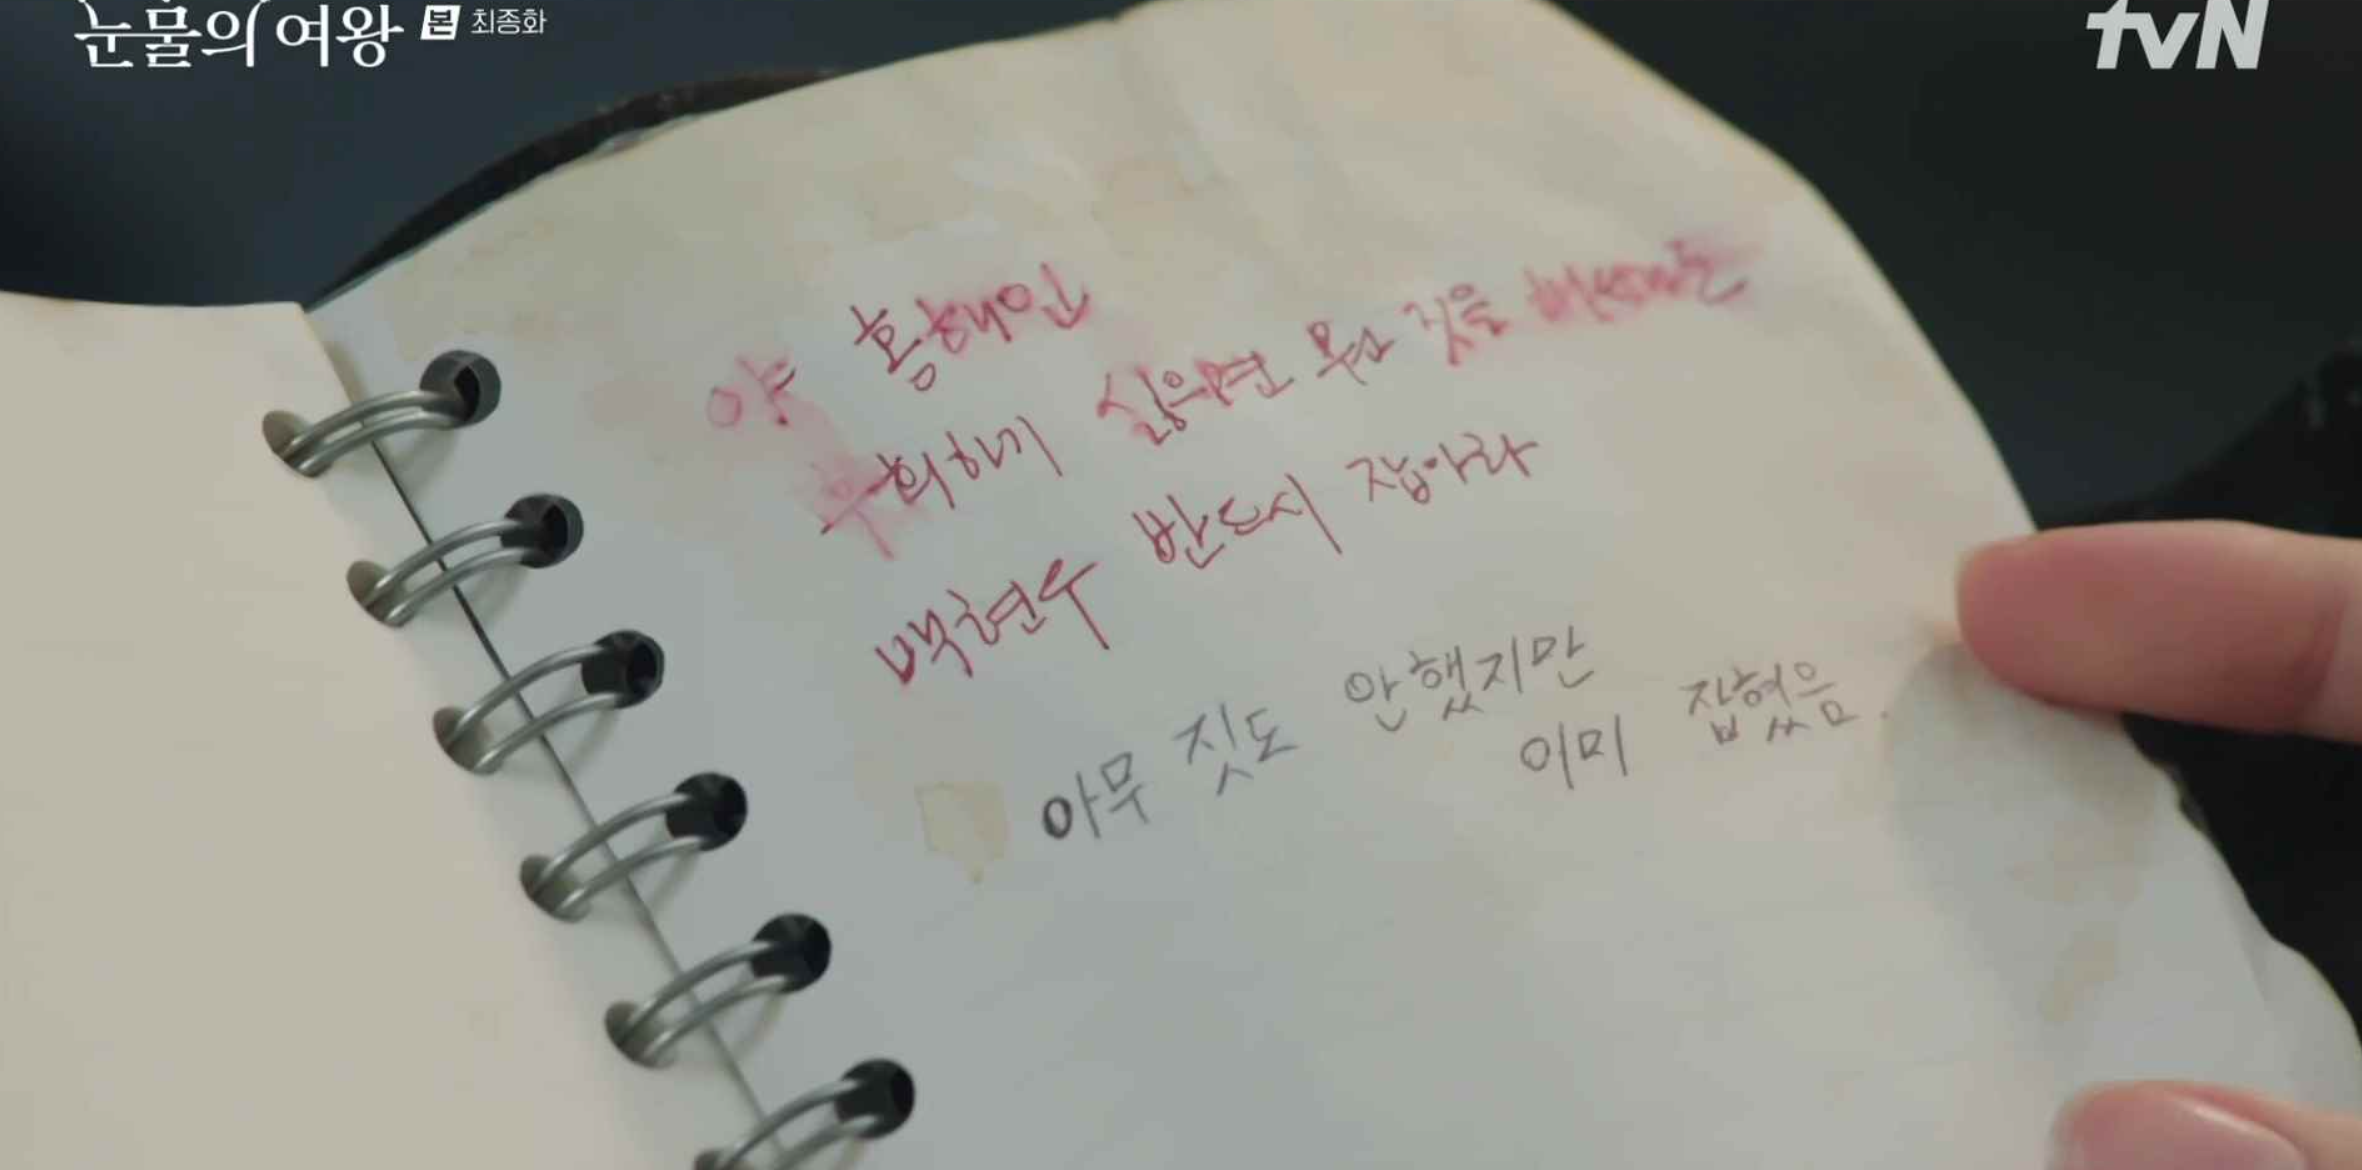 눈물의 여왕 본 최종화
tvN
야 홍해인
후회하기 싫으면 무슨 짓을
백현우 반드시 잡아라
아무 짓도 안했지만
이미 잡혔음.